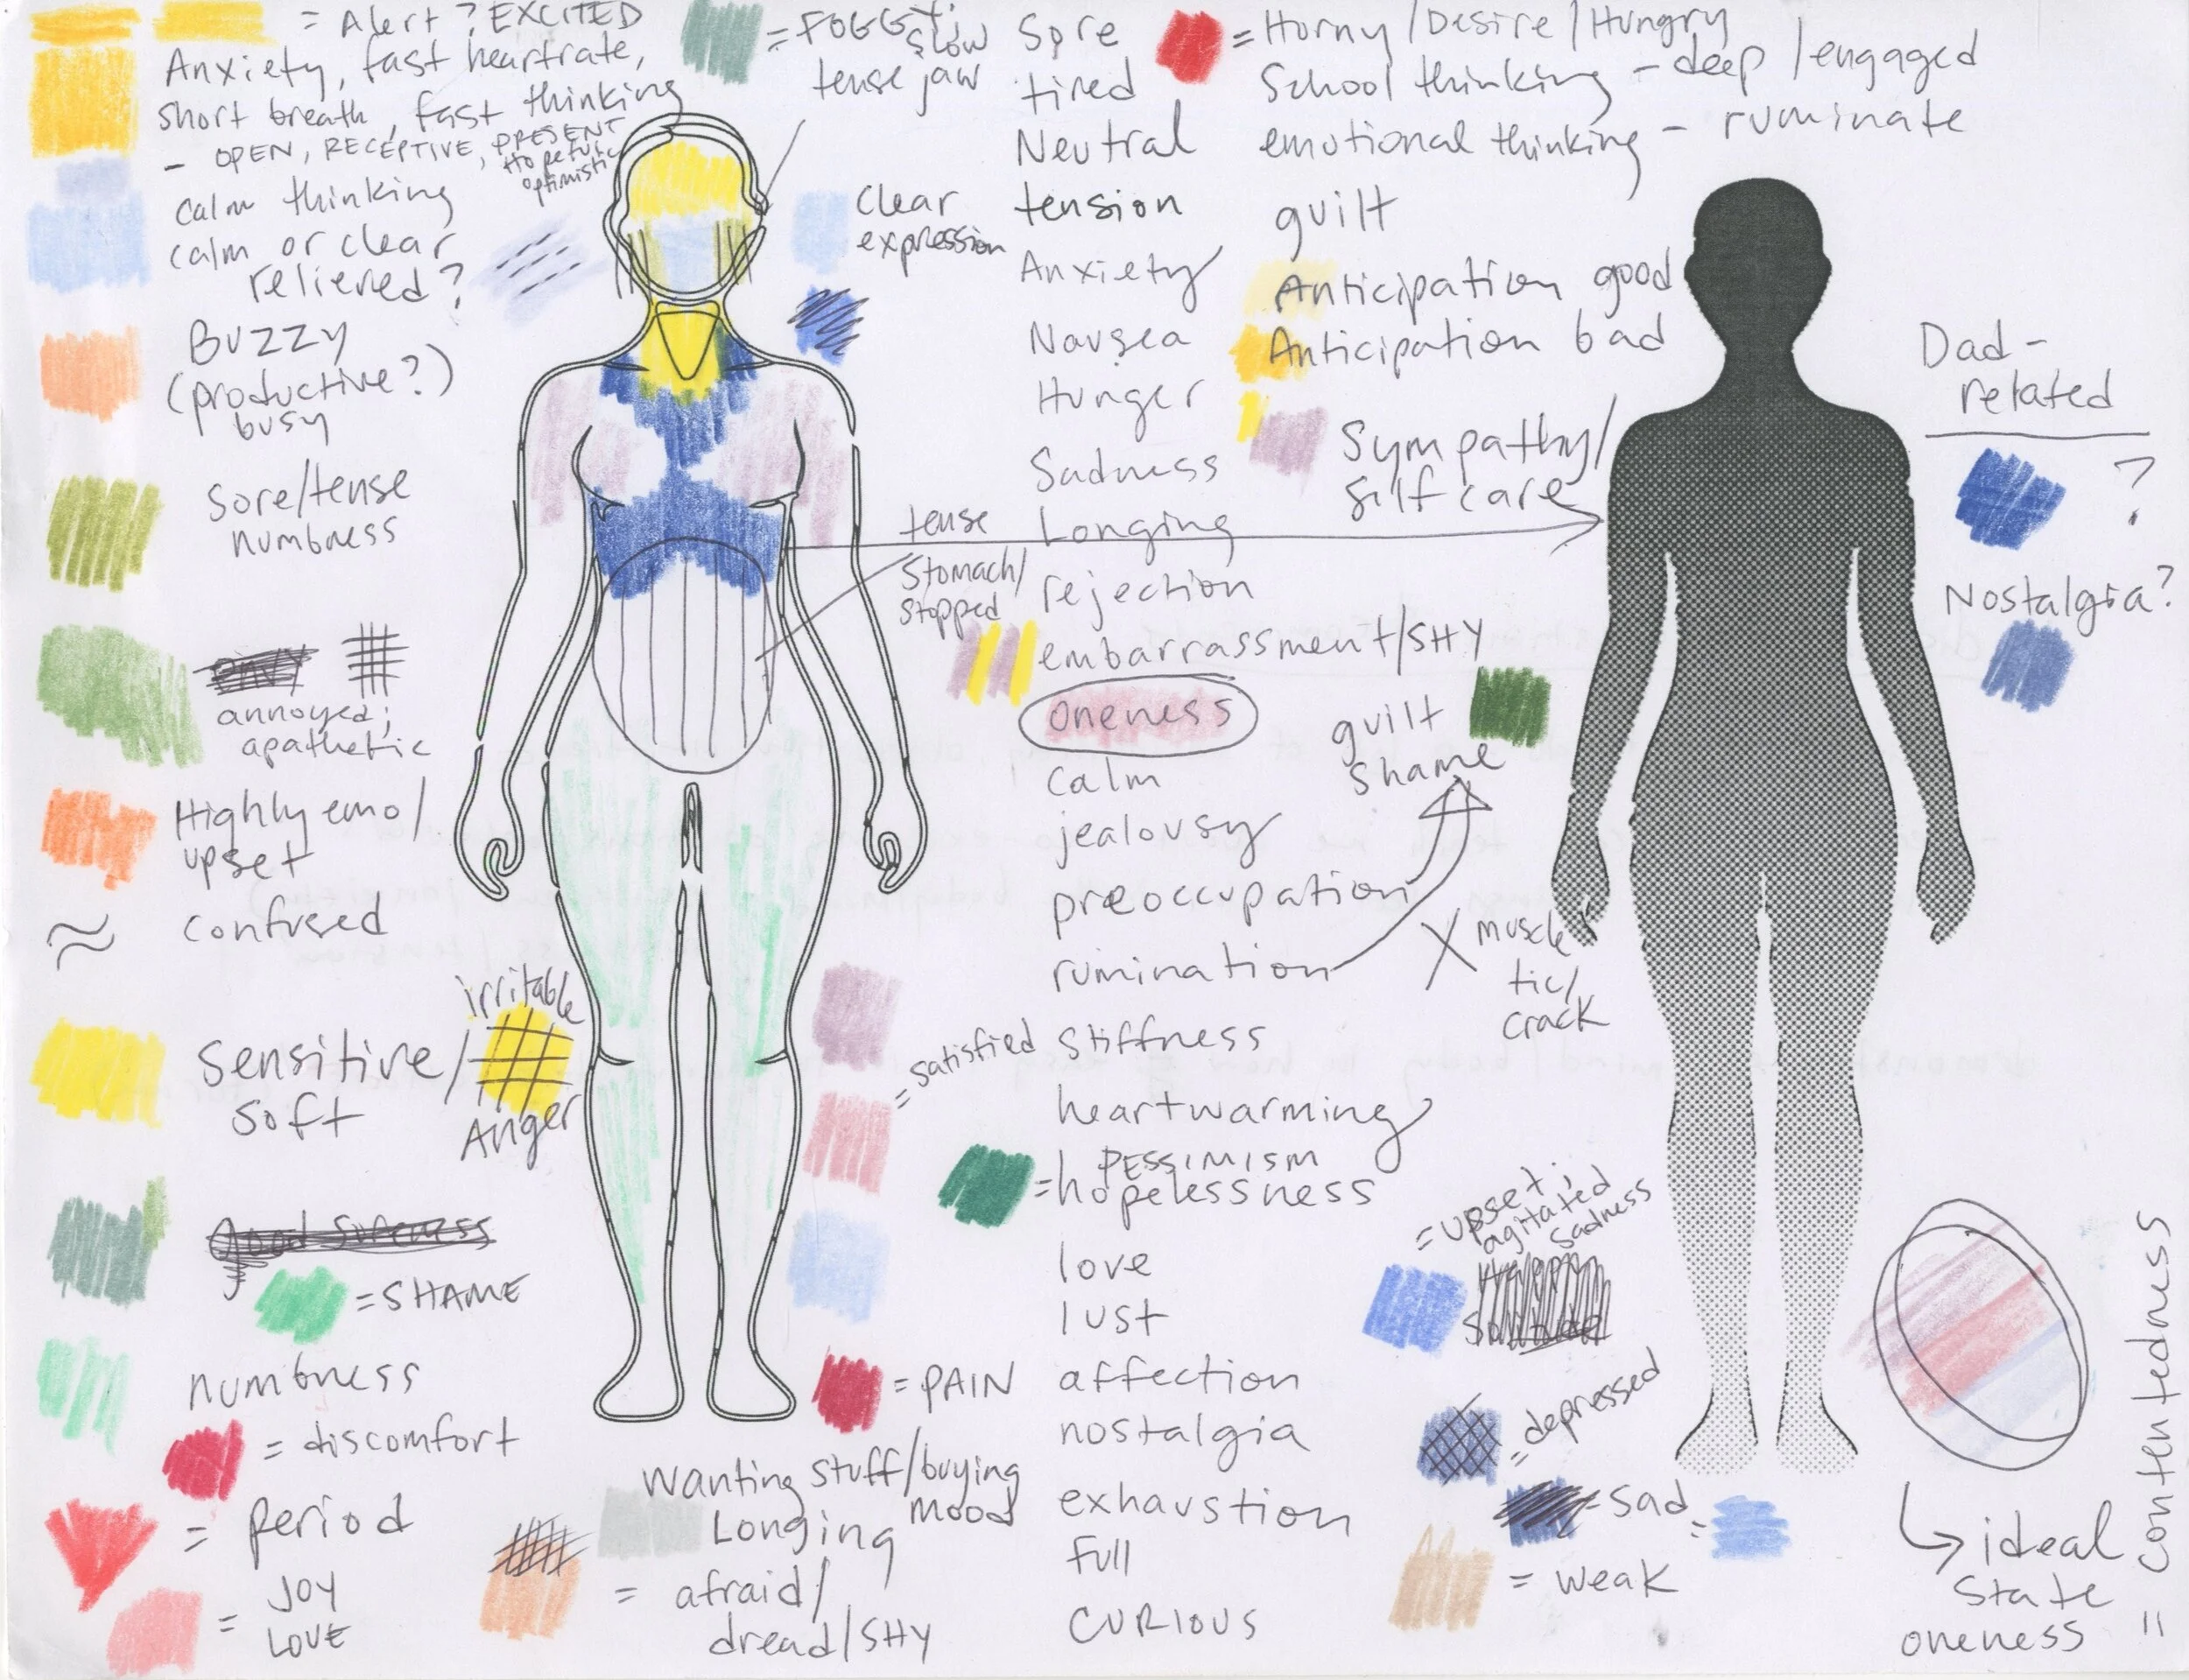 = Alert ? EXCITED
Anxiety, fast heartrate,
short breath, fast thinking
- OPEN, RECEPTIVE, PRESENT
Hopeful
optimistic
calm thinking
calm or clear
relieved?
Buzzy
(productive?)
busy
Sore/tense
numbness
annoyed;
apathetic
Highly emo/
upset
confused
irritable
Sensitive/
soft
Anger
good soreness
= SHAME
numbness
= discomfort
= period
= JOY
LOVE
= FOGGY;
slow
tense jaw
clear
expression
tense
stomach/
stopped
= satisfied
= PAIN
Wanting stuff/buying
mood
Longing
= afraid/
dread/SHY
Sore
tired
Neutral
tension
Anxiety
Nausea
Hunger
Sadness
Longing
rejection
embarrassment/SHY
oneness
calm
jealousy
preoccupation
rumination
stiffness
heartwarming
PESSIMISM
= hopelessness
love
lust
affection
nostalgia
exhaustion
full
CURIOUS
= Horny/Desire/Hungry
School thinking - deep/engaged
emotional thinking - ruminate
guilt
Anticipation good
Anticipation bad
Sympathy/
self care
guilt
shame
X muscle
tic/
crack
= upset;
agitated
sadness
= depressed
= sad =
= weak
Dad-
related
?
Nostalgia?
ideal
state
oneness
= contentedness